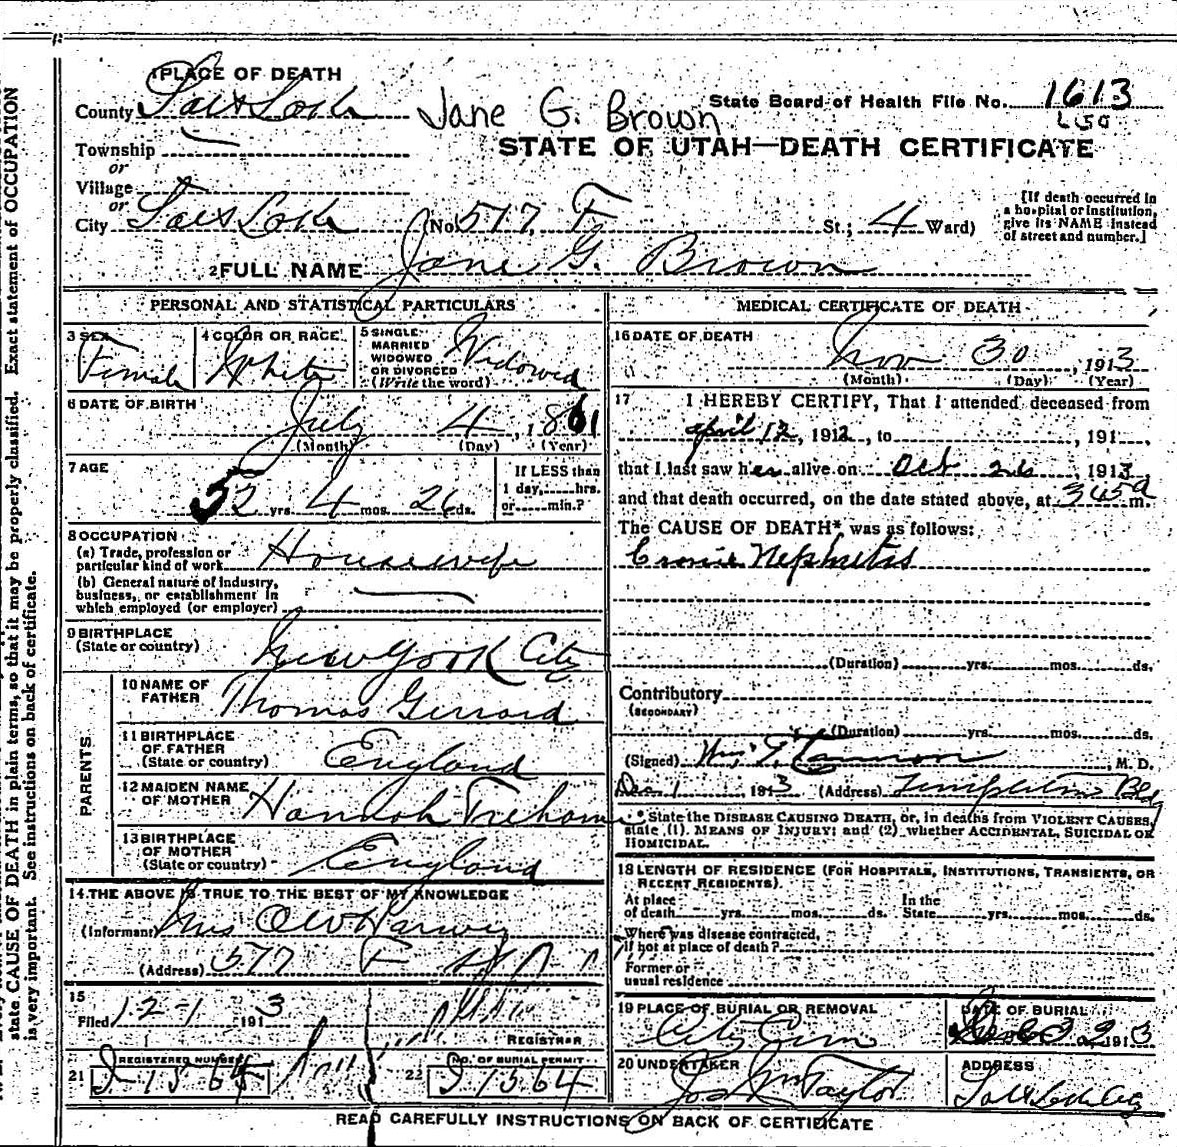 1 PLACE OF DEATH
County Salt Lake
Jane G. Brown
State Board of Health File No. 1613
Township
or
STATE OF UTAH—DEATH CERTIFICATE
Village
or
City Salt Lake (No. 517 F St.; 4 Ward)
[If death occurred in
a hospital or institution,
give its NAME instead
of street and number.]
2 FULL NAME Jane G. Brown
PERSONAL AND STATISTICAL PARTICULARS
3 SEX Female
4 COLOR OR RACE White
5 SINGLE
MARRIED
WIDOWED
OR DIVORCED
(Write the word)
Widowed
6 DATE OF BIRTH July 4, 1861
(Month) (Day) (Year)
7 AGE
52 yrs. 4 mos. 26 ds.
If LESS than
1 day, hrs.
or min.?
8 OCCUPATION
(a) Trade, profession or
particular kind of work Housewife
(b) General nature of industry,
business, or establishment in
which employed (or employer)
9 BIRTHPLACE
(State or country) New York City
PARENTS
10 NAME OF
FATHER Thomas Gerrard
11 BIRTHPLACE
OF FATHER
(State or country) England
12 MAIDEN NAME
OF MOTHER Hannah
13 BIRTHPLACE
OF MOTHER
(State or country) England
14 THE ABOVE IS TRUE TO THE BEST OF MY KNOWLEDGE
(Informant) Mrs O W Harvey
(Address) 577 F
15
Filed 12-1 1913
REGISTRAR
21 REGISTERED NUMBER
22 NO. OF BURIAL PERMIT
I 1564
MEDICAL CERTIFICATE OF DEATH
16 DATE OF DEATH
Nov 30, 1913
(Month) (Day) (Year)
17 I HEREBY CERTIFY, That I attended deceased from
April 12, 1912, to , 191
that I last saw her alive on Oct 26, 1913,
and that death occurred, on the date stated above, at 345a m.
The CAUSE OF DEATH* was as follows:
Cronic Nephritis
(Duration) yrs. mos. ds.
Contributory
(SECONDARY)
(Duration) yrs. mos. ds.
(Signed) Wm. T. Cannon, M. D.
Dec 1 1913 (Address) Templeton Bld
* State the DISEASE CAUSING DEATH, or, in deaths from VIOLENT CAUSES,
state (1) MEANS OF INJURY; and (2) whether ACCIDENTAL, SUICIDAL OR
HOMICIDAL.
18 LENGTH OF RESIDENCE (FOR HOSPITALS, INSTITUTIONS, TRANSIENTS, OR
RECENT RESIDENTS).
At place
of death yrs. mos. ds.
In the
State yrs. mos. ds.
Where was disease contracted,
if not at place of death?
Former or
usual residence
19 PLACE OF BURIAL OR REMOVAL
City Cem
DATE OF BURIAL
1913
20 UNDERTAKER
Jos Wm Taylor
ADDRESS
Salt Lake City
READ CAREFULLY INSTRUCTIONS ON BACK OF CERTIFICATE
state CAUSE OF DEATH in plain terms, so that it may be properly classified. Exact statement of OCCUPATION
is very important. See instructions on back of certificate.